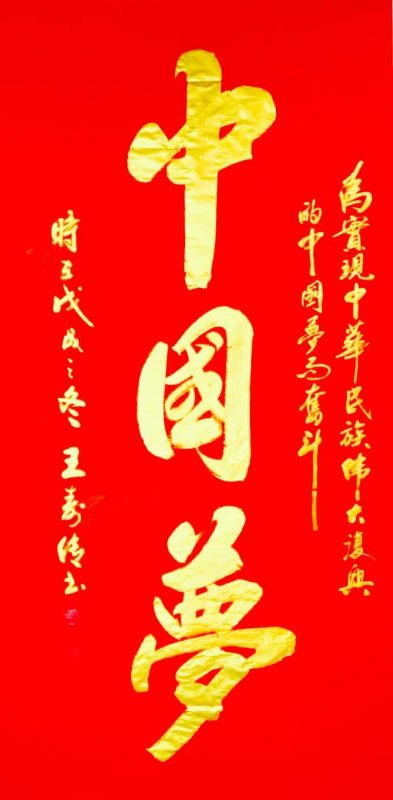 為實現中華民族偉大復興
的中國夢而奮斗
中國夢
時在戊戌之冬 王壽清书